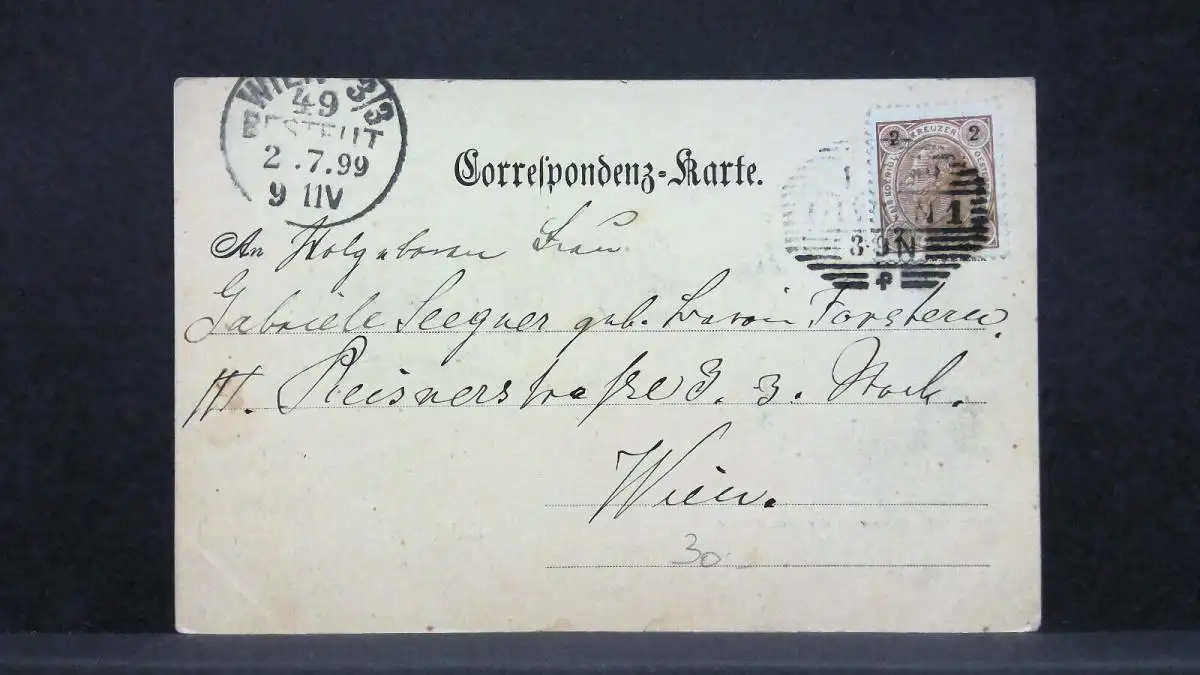 WIEN 3/3
49
BESTELLT
2.7.99
9 11V
Correspondenz-Karte.
2 KREUZER 2
1
8·9N
An Frau
Gabriele Seegner geb. Baronin Forstern.
III. Reisnerstraße 3. 3. Stock.
Wien.
30